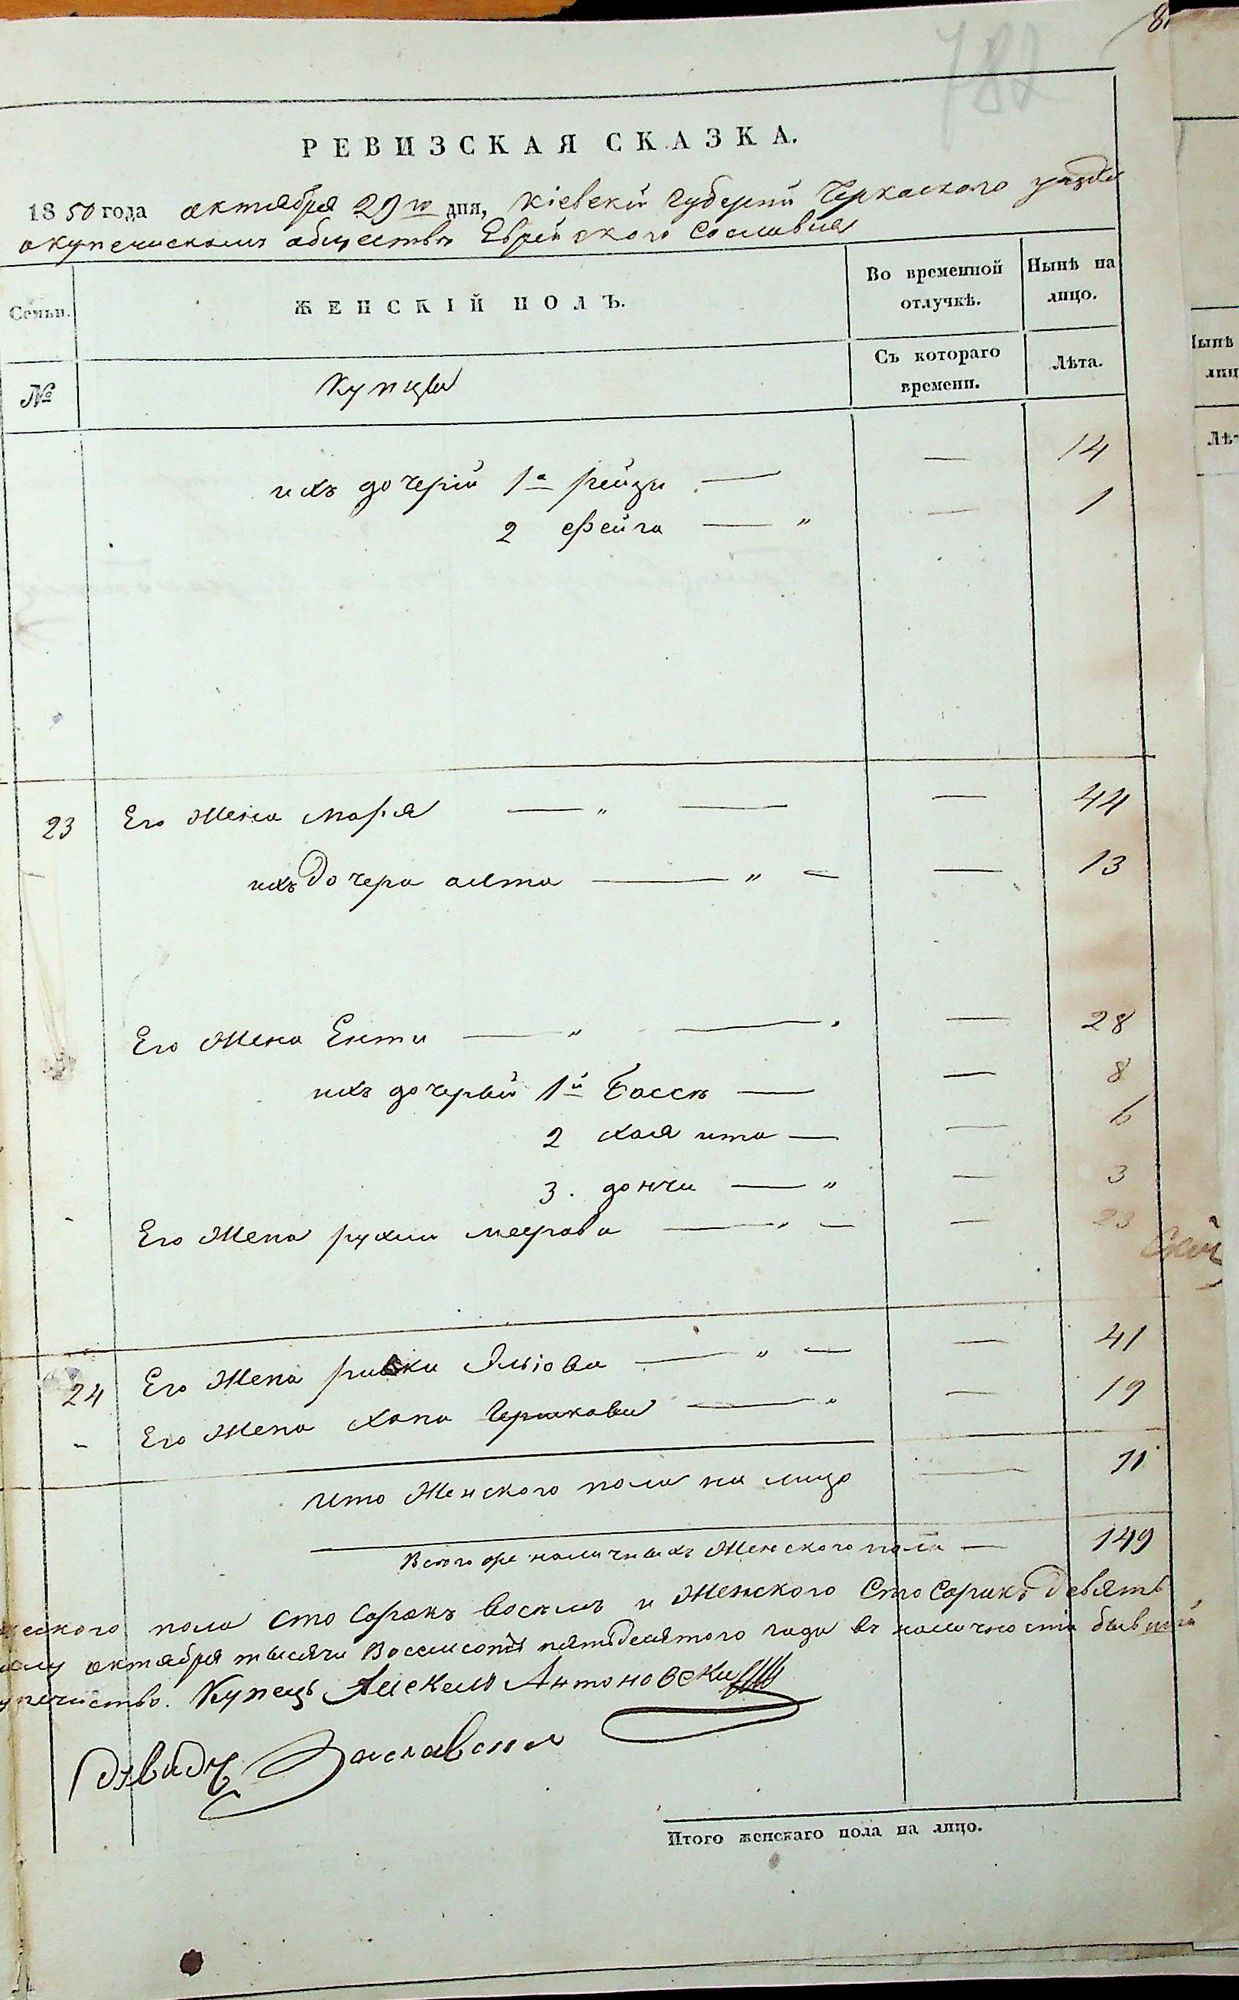 782
8
РЕВИЗСКАЯ СКАЗКА.
1850 года октября 29го дня, Кіевскій Губерніи Черкаского уезда
окупечискомъ обществѣ Еврейского Сословия
Семьи.
ЖЕНСКІЙ ПОЛЪ.
Во временной отлучкѣ.
Нынѣ на лицо.
№
Купцы
Съ котораго времени.
Лѣта.
ихъ дочерій 1а рейзи — — 14
2 Фейга — „ — 1
23 Его Жена Мария — „ — — 44
ихъ дочера алта — „ — — 13
Его Жена Енти — „ — — 28
ихъ дочерьи 1й Бассѣ — — 8
2 хая ита — — 6
3. дончи — „ — 3
Его Жена рухли меерова — „ — — 23
24 Его Жена ривки Эльіова — „ — — 41
- Его Жена Хана Гершкова — „ — 19
Ито Женского пола на лицо — 11
Всего наличныхъ Женского пола — 149
пола сто сорокъ восемь и Женского Сто Сорокъ девять
октября тысячи Восемсотъ пятьдесятого года въ наличности бывший
Купецъ Антоновски
Давидъ Заславски
Итого женскаго пола на лицо.
Нынѣ
лиц
Лѣт